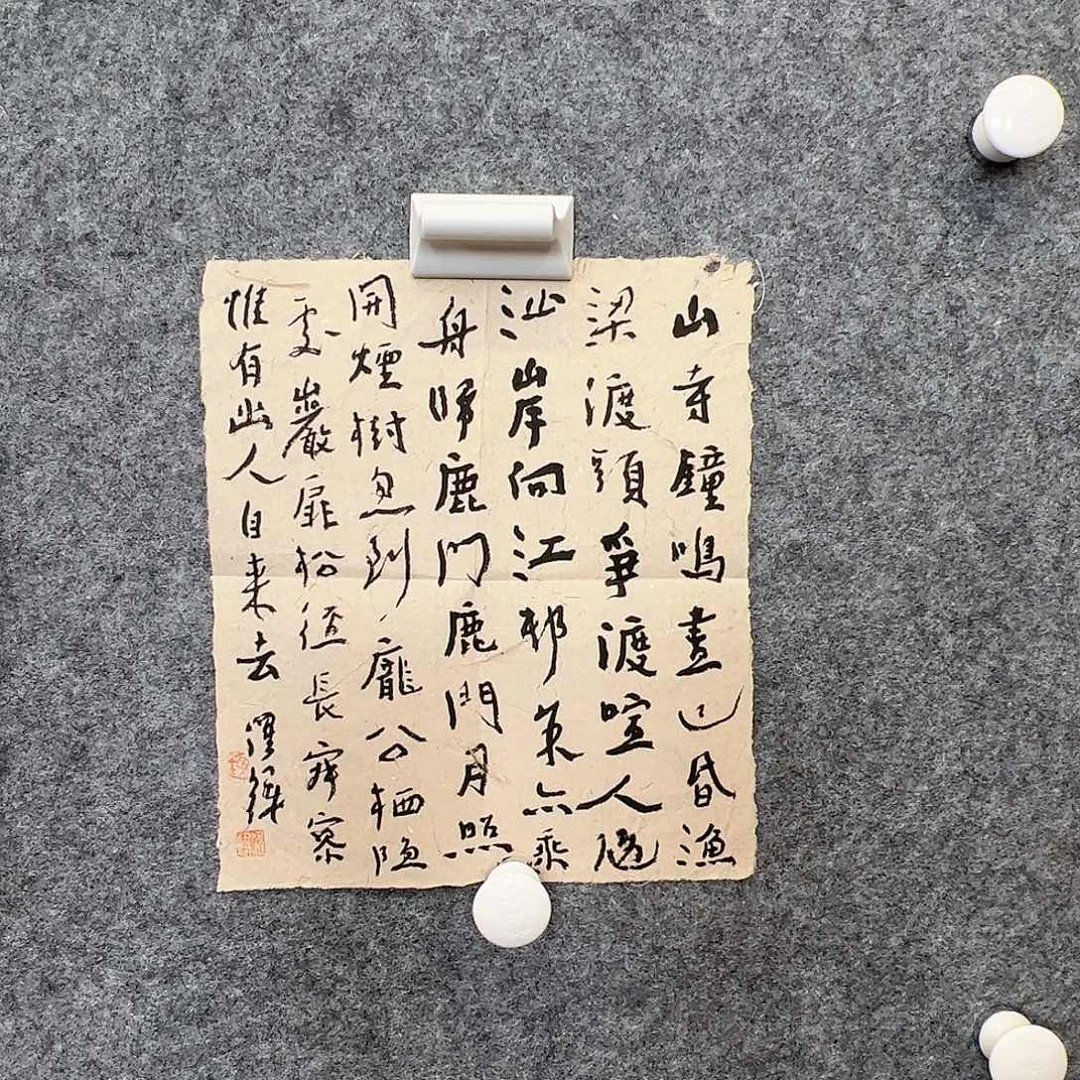 山寺鐘鳴晝已昏漁
梁渡頭爭渡喧人隨
沙岸向江邨余亦乘
舟歸鹿門鹿門月照
開煙樹忽到龐公栖隐
處巖扉松徑長寂寥
惟有幽人自来去